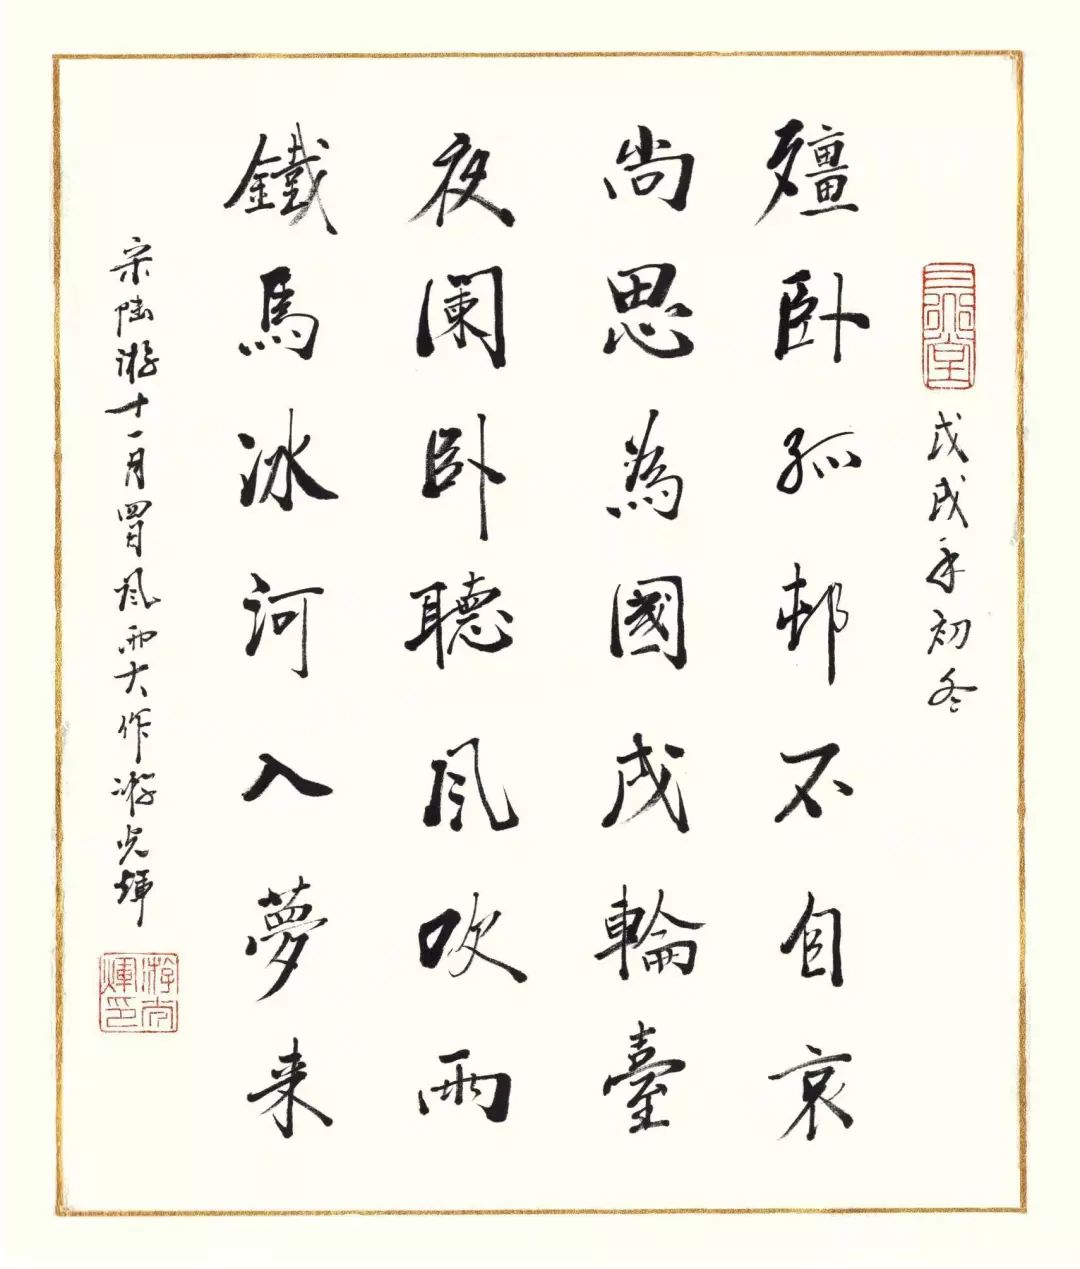 戊戌年初冬
殭卧孤邨不自哀
尚思為國戍輪臺
夜闌卧聽風吹雨
鐵馬冰河入夢来
宋陸游十一月四日風雨大作游光煇
游光煇印